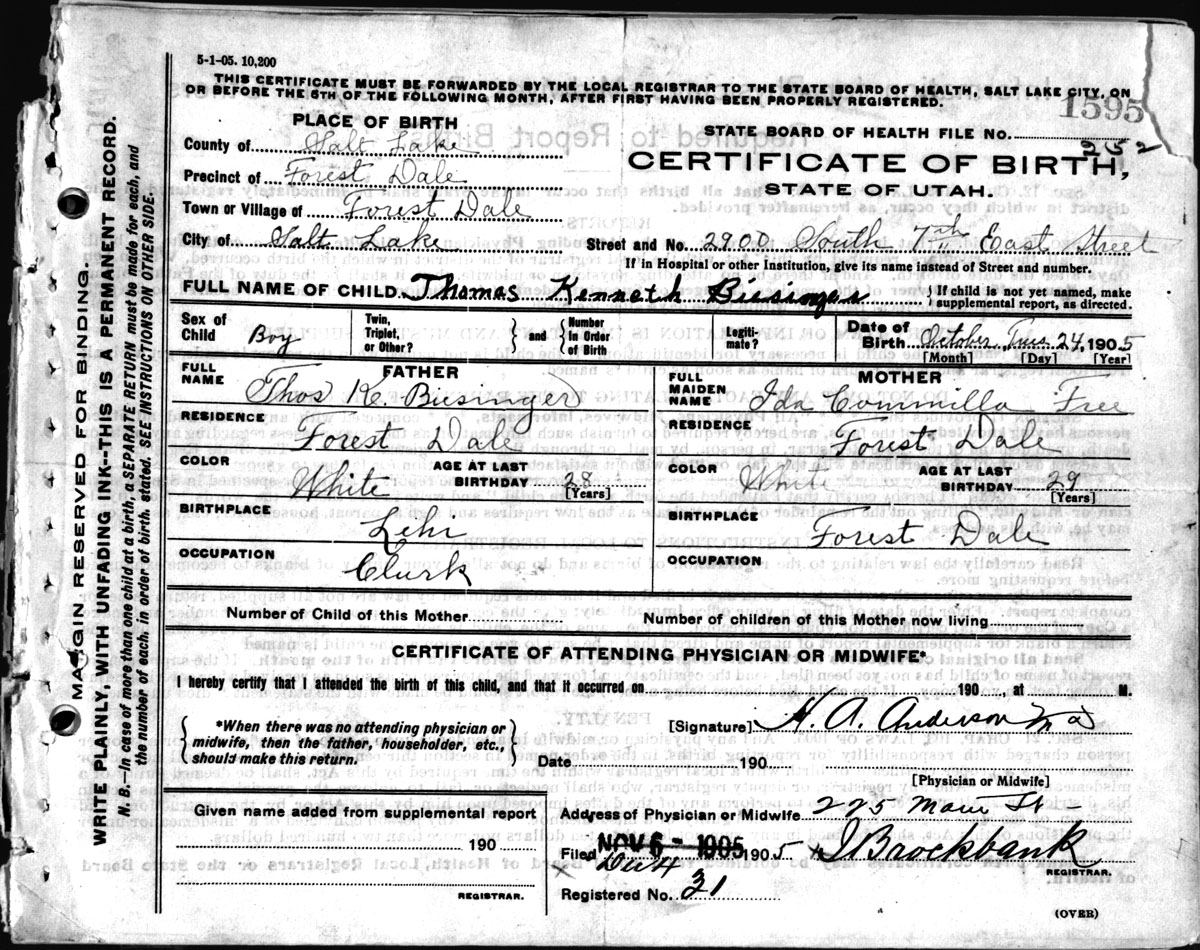 5-1-05. 10,200
THIS CERTIFICATE MUST BE FORWARDED BY THE LOCAL REGISTRAR TO THE STATE BOARD OF HEALTH, SALT LAKE CITY, ON
OR BEFORE THE 5TH OF THE FOLLOWING MONTH, AFTER FIRST HAVING BEEN PROPERLY REGISTERED.
1595
PLACE OF BIRTH
STATE BOARD OF HEALTH FILE NO. 252
County of Salt Lake
CERTIFICATE OF BIRTH,
Precinct of Forest Dale
STATE OF UTAH.
Town or Village of Forest Dale
City of Salt Lake
Street and No. 2900 South 7th East Street
If in Hospital or other Institution, give its name instead of Street and number.
FULL NAME OF CHILD Thomas Kenneth Biesinger
{ If child is not yet named, make
supplemental report, as directed.
Sex of Child Boy
Twin, Triplet, or Other?
} and {
Number in Order of Birth
Legiti- mate?
Date of Birth October Tues 24, 1905
[Month] [Day] [Year]
FATHER
FULL NAME Thos K. Biesinger
RESIDENCE Forest Dale
COLOR White
AGE AT LAST BIRTHDAY 28
[Years]
BIRTHPLACE Lehi
OCCUPATION Clurk
MOTHER
FULL MAIDEN NAME Ida Commilla Free
RESIDENCE Forest Dale
COLOR White
AGE AT LAST BIRTHDAY 29
[Years]
BIRTHPLACE Forest Dale
OCCUPATION
Number of Child of this Mother
Number of children of this Mother now living
CERTIFICATE OF ATTENDING PHYSICIAN OR MIDWIFE*
I hereby certify that I attended the birth of this child, and that it occurred on 190 , at M.
{ *When there was no attending physician or
midwife, then the father, householder, etc.,
should make this return. }
[Signature] H. A. Anderson M D
Date 190
[Physician or Midwife]
Given name added from supplemental report
190
REGISTRAR.
Address of Physician or Midwife 225 Main St
NOV 6 - 1905
Filed 1905 Brockbank
REGISTRAR.
Registered No. 31
(OVER)
MARGIN RESERVED FOR BINDING
WRITE PLAINLY, WITH UNFADING INK--THIS IS A PERMANENT RECORD.
N. B.--In case of more than one child at a birth, a SEPARATE RETURN must be made for each, and
the number of each. in order of birth. stated. SEE INSTRUCTIONS ON OTHER SIDE.